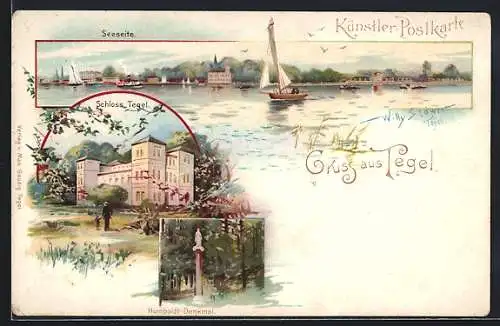 Künstler-Postkarte
Seeseite.
Schloss Tegel.
Willy Stöwer
Tegel.
Gruss aus Tegel.
Humboldt-Denkmal.
Verlag v. Max Tegel